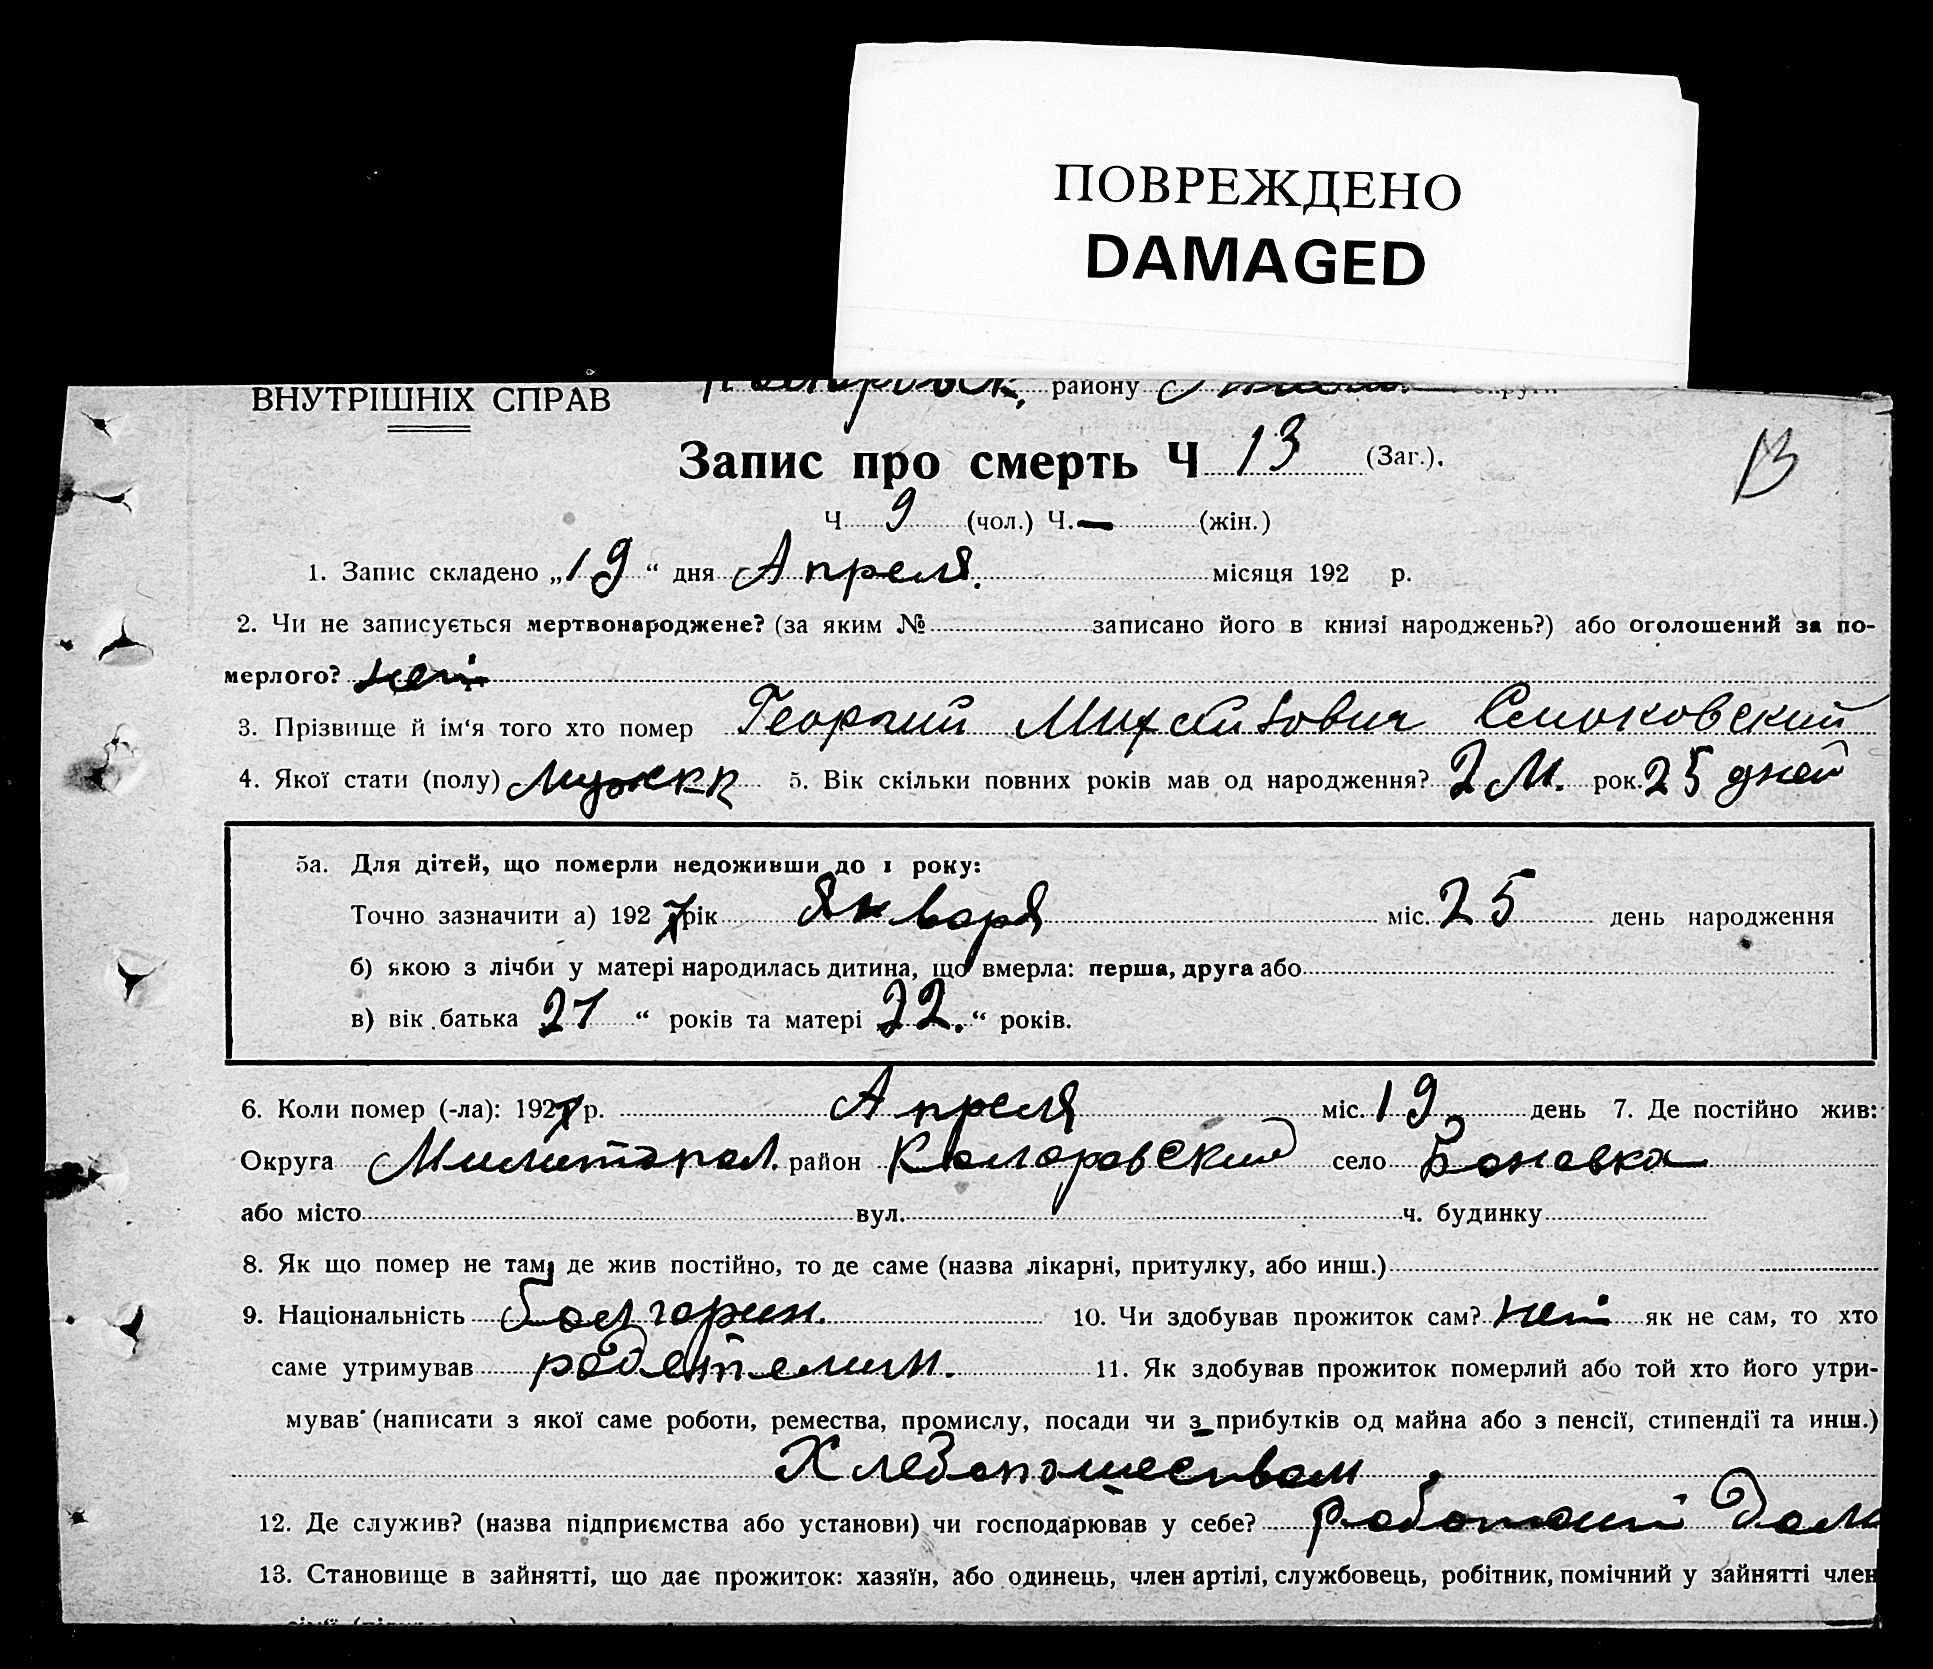 ПОВРЕЖДЕНО
DAMAGED
ВНУТРІШНІХ СПРАВ району
Запис про смерть Ч 13 (Заг.).
13
Ч 9 (чол.) Ч. — (жін.)
1. Запис складено „19“ дня Апреля. місяця 192 р.
2. Чи не записується мертвонароджене? (за яким № записано його в книзі народжень?) або оголошений за по-
мерлого? нет
3. Прізвище й ім‘я того хто помер Георгий Михайлович Слюковский
4. Якої стати (полу) Мужск 5. Вік скільки повних років мав од народження? 2 М. рок. 25 дней
5а. Для дітей, що померли недоживши до 1 року:
Точно зазначити а) 1927 рік Января міс. 25 день народження
б) якою з лічби у матері народилась дитина, що вмерла: перша, друга або
в) вік батька 21 “ років та матері 22. “ років.
6. Коли помер (-ла): 1927 р. Апреля міс. 19 день 7. Де постійно жив:
Округа Милитопол. район Коларовский село Бановка
або місто вул. ч. будинку
8. Як що помер не там, де жив постійно, то де саме (назва лікарні, притулку, або инш.)
9. Національність Болгарин. 10. Чи здобував прожиток сам? нет як не сам, то хто
саме утримував родителями. 11. Як здобував прожиток померлий або той хто його утри-
мував (написати з якої саме роботи, ремества, промислу, посади чи з прибутків од майна або з пенсії, стипендії та инш.)
Хлебопашеством
12. Де служив? (назва підприємства або установи) чи господарював у себе? работает дома
13. Становище в зайнятті, що дає прожиток: хазяїн, або одинець, член артілі, службовець, робітник, помічний у зайнятті член